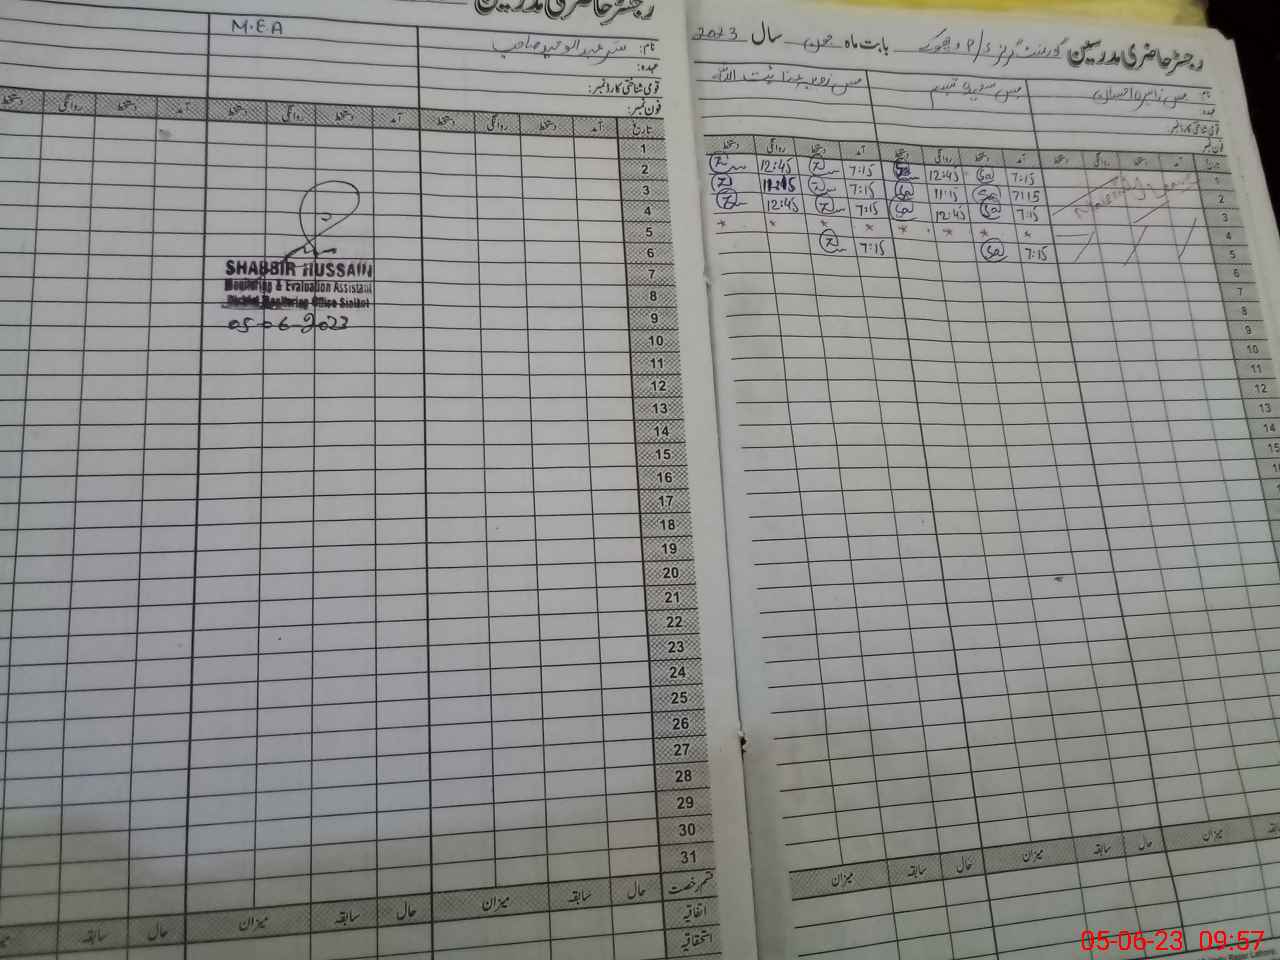 رجسٹر حاضری مدرسین
M.E.A
نام:
عہدہ:
قومی شناختی کارڈ نمبر:
فون نمبر:
تاریخ آمد دستخط روانگی دستخط آمد دستخط روانگی دستخط آمد دستخط روانگی دستخط
1
2
3
4
5
6
7
8
9
10
11
12
13
14
15
16
17
18
19
20
21
22
23
24
25
26
27
28
29
30
31
SHABBIR HUSSAIN
Monitoring & Evaluation Assistant
District Monitoring Office Sialkot
05-06-2023
قسم رخصت حال سابقہ میزان حال سابقہ میزان حال سابقہ
اتفاقیہ
استحقاقیہ
رجسٹر حاضری مدرسین گورنمنٹ گرلز P/S بابت ماہ جون سال 2023
نام:
عہدہ:
قومی شناختی کارڈ نمبر:
فون نمبر
تاریخ آمد دستخط روانگی دستخط آمد دستخط روانگی دستخط آمد دستخط روانگی دستخط
1 Maternity Leave 7:15 Sa 12:45 7:15 Z 12:45 Z
2 7:15 Sa 11:15 Sa 7:15 Z 11:15 Z
3 7:15 Sa 12:45 Sa 7:15 Z 12:45 Z
4 * * * * * * * *
5 7:15 Sa 7:15 Z
6
7
8
9
10
11
12
13
14
15
میزان حال سابقہ میزان حال سابقہ میزان
05-06-23 09:57